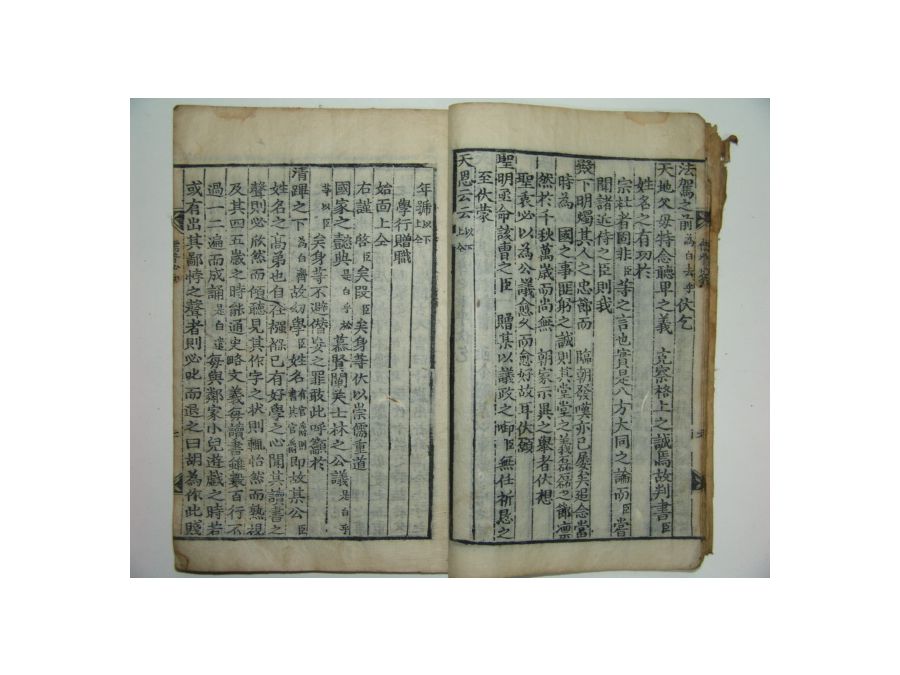 法駕之前為白去乎伏乞
天地父母特念聽卑之義 克察格上之誠焉故判書臣
姓名之有功於
宗社者固非臣等之言也實是八方大同之論而臣嘗
聞諸近侍之臣則我
殿下明燭其人之忠節而 臨朝發嘆亦已屢矣追念當
時為 國之事匪躬之誠則其堂堂之義磊磊之節
然於千秋萬歲而尚無 朝家示異之舉者伏想
聖衷必以為公議愈久而愈好故耳伏願
聖明亟命該曹之臣 贈某以議政之啣臣無任祈懇之
至伏蒙
天恩云云以下上仝
年號以下上仝
學行贈職
始面上仝
右謹 啓臣矣段臣矣身等伏以崇儒重道
國家之懿典是白乎旀慕賢闡美士林之公議是白乎
等以臣矣身等不避僭妄之罪敢此呼籲於
清蹕之下為白齊故幼學臣姓名有官爵則書其官爵即故某公臣
姓名之高弟也自在襁褓已有好學之心聞其讀書之
聲則必欣然而傾聽見其作字之狀則輒怡然而熟視
及其四五歲之時能通史略文義每讀書雖數百行不
過一二遍而成誦是白遣每與鄰家小兒遊戲之時若
或有出其鄙悖之聲者則必叱而退之曰胡為作此賤